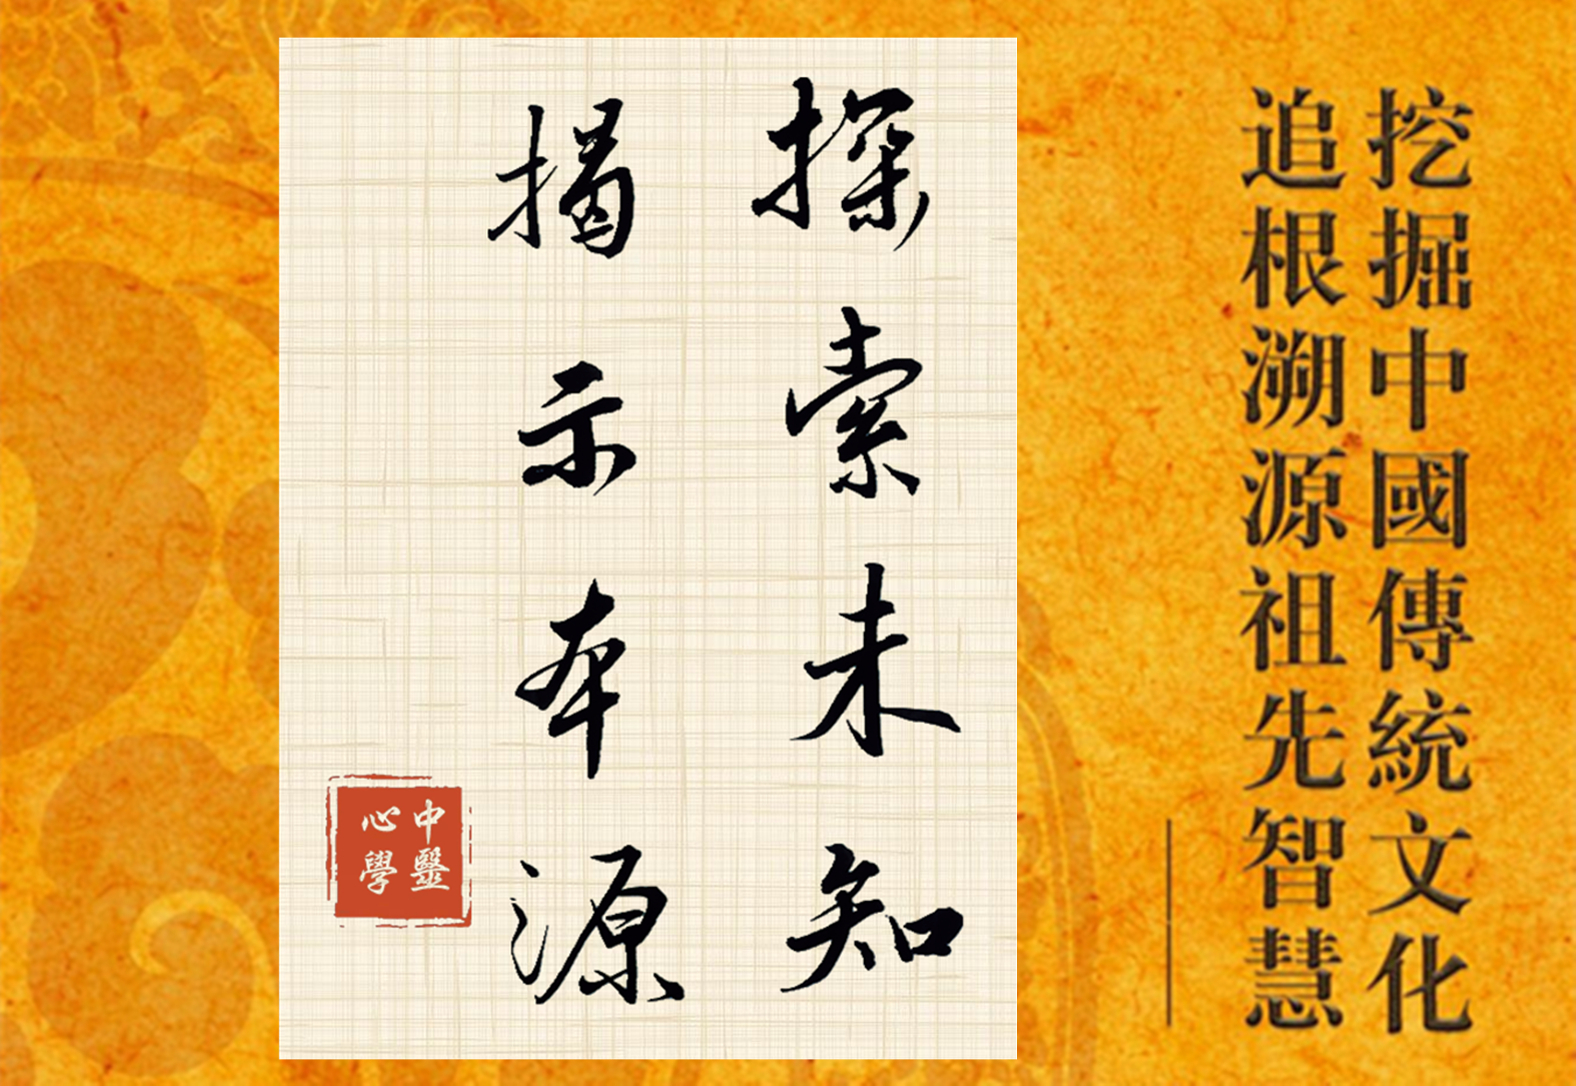 挖掘中國傳統文化
追根溯源祖先智慧
探索未知
揭示本源
中醫
心學